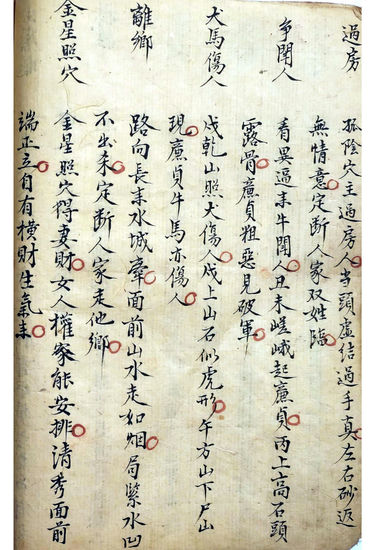 過房
孤陰穴主過房人当頭虚结過手真左右砂返
無情意定断人家双姓臨
争閗人
看異過来牛閗人丑未嵯峨起廉貞丙上高石頭
露骨廉貞粗惡見破軍
犬馬傷人
戌乾山照犬傷人戌上山石似虎形午方山下尸山
現廉貞牛馬亦傷人
離鄉
路向長来水城牽面前山水走如烟局緊水凹
不出来定断人家走他鄉
金星照穴
金星照穴得妻財女人權家能安排清秀面前
端正立自有横财生氣来